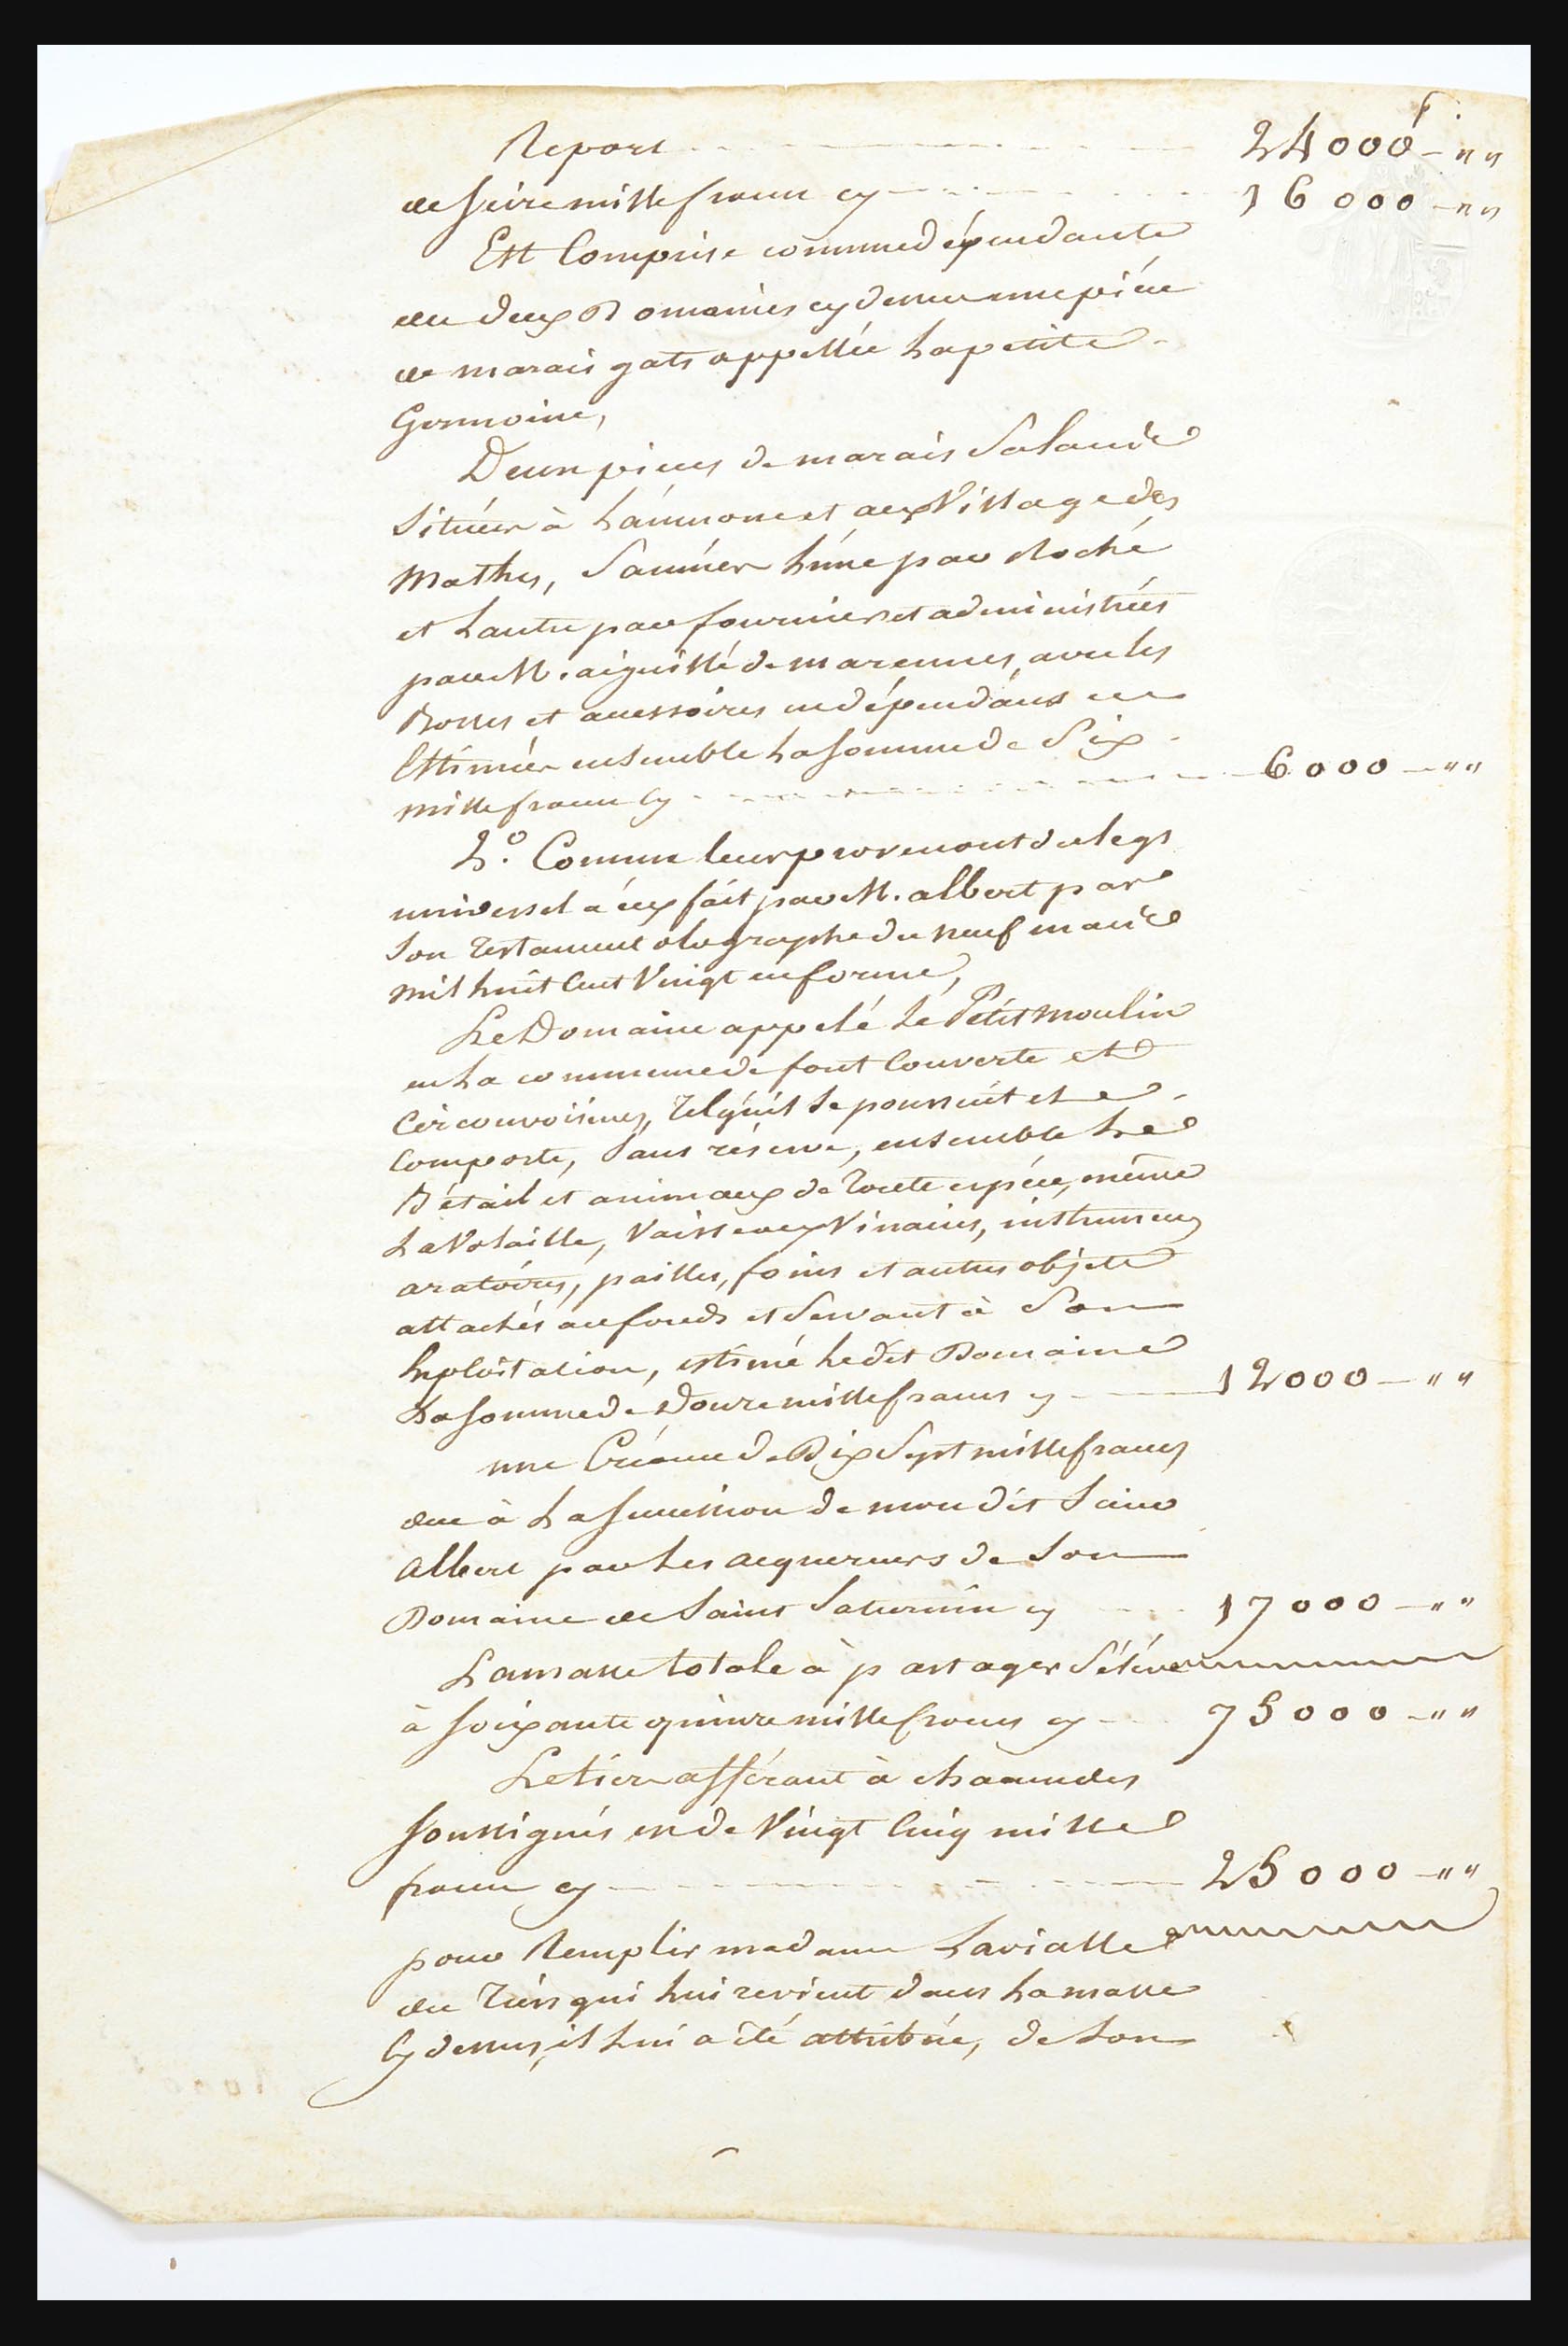 Report 24000 f. - " "
de seize mille francs cy 16000 - " "
Est Comprise comme dépendante
des deux Domaines cy dessus une pièce
de marais gats appellée La petite
Deux pièces de marais Salans
Situées à et aux Village des
Mathes, Saunées L'une par Roché
et Lautre par fournier et administrées
par M. aiguillé de marennes, avec les
Bosses et accessoires en dépendans
Estimées ensemble La somme de Six
mille francs Cy 6000 - " "
2.º Comme leur provenant du legs
universel à eux fait par M. albert par
Son Testament olographe du neuf mars
mil huit Cent Vingt en forme,
Le Domaine appelé Le Petit moulin
en La commune de font Couverte et
Circonvoisines, Tel qu'il Se poursuit et Se
Comporte, Sans réserve, ensemble Le
Bétail et animaux de Toute espéce, même
La Volaille, Vaisseaux Vinaires, instrumens
aratoires, pailles, foins et autres objets
attachés au fonds et Servant à Son
Exploitation, estimé Ledit Domaine
La somme de Douze mille francs cy 12000 - " "
une Créance de Dix Sept mille francs
due à La succession de mon dit Sieur
Albert par Les acquereurs de Son
Domaine de Saint Saturnin cy 17000 - " "
La masse totale à partager S'éléve
à soixante quinze mille francs cy 75000 - " "
Le tiers afférant à chacun des
soussignés est de Vingt Cinq mille
francs cy 25000 - " "
pour Remplir madame Lavialle
du Tiers qui Lui revient dans La masse
Cy dessus, il Lui a été attribué, de Son